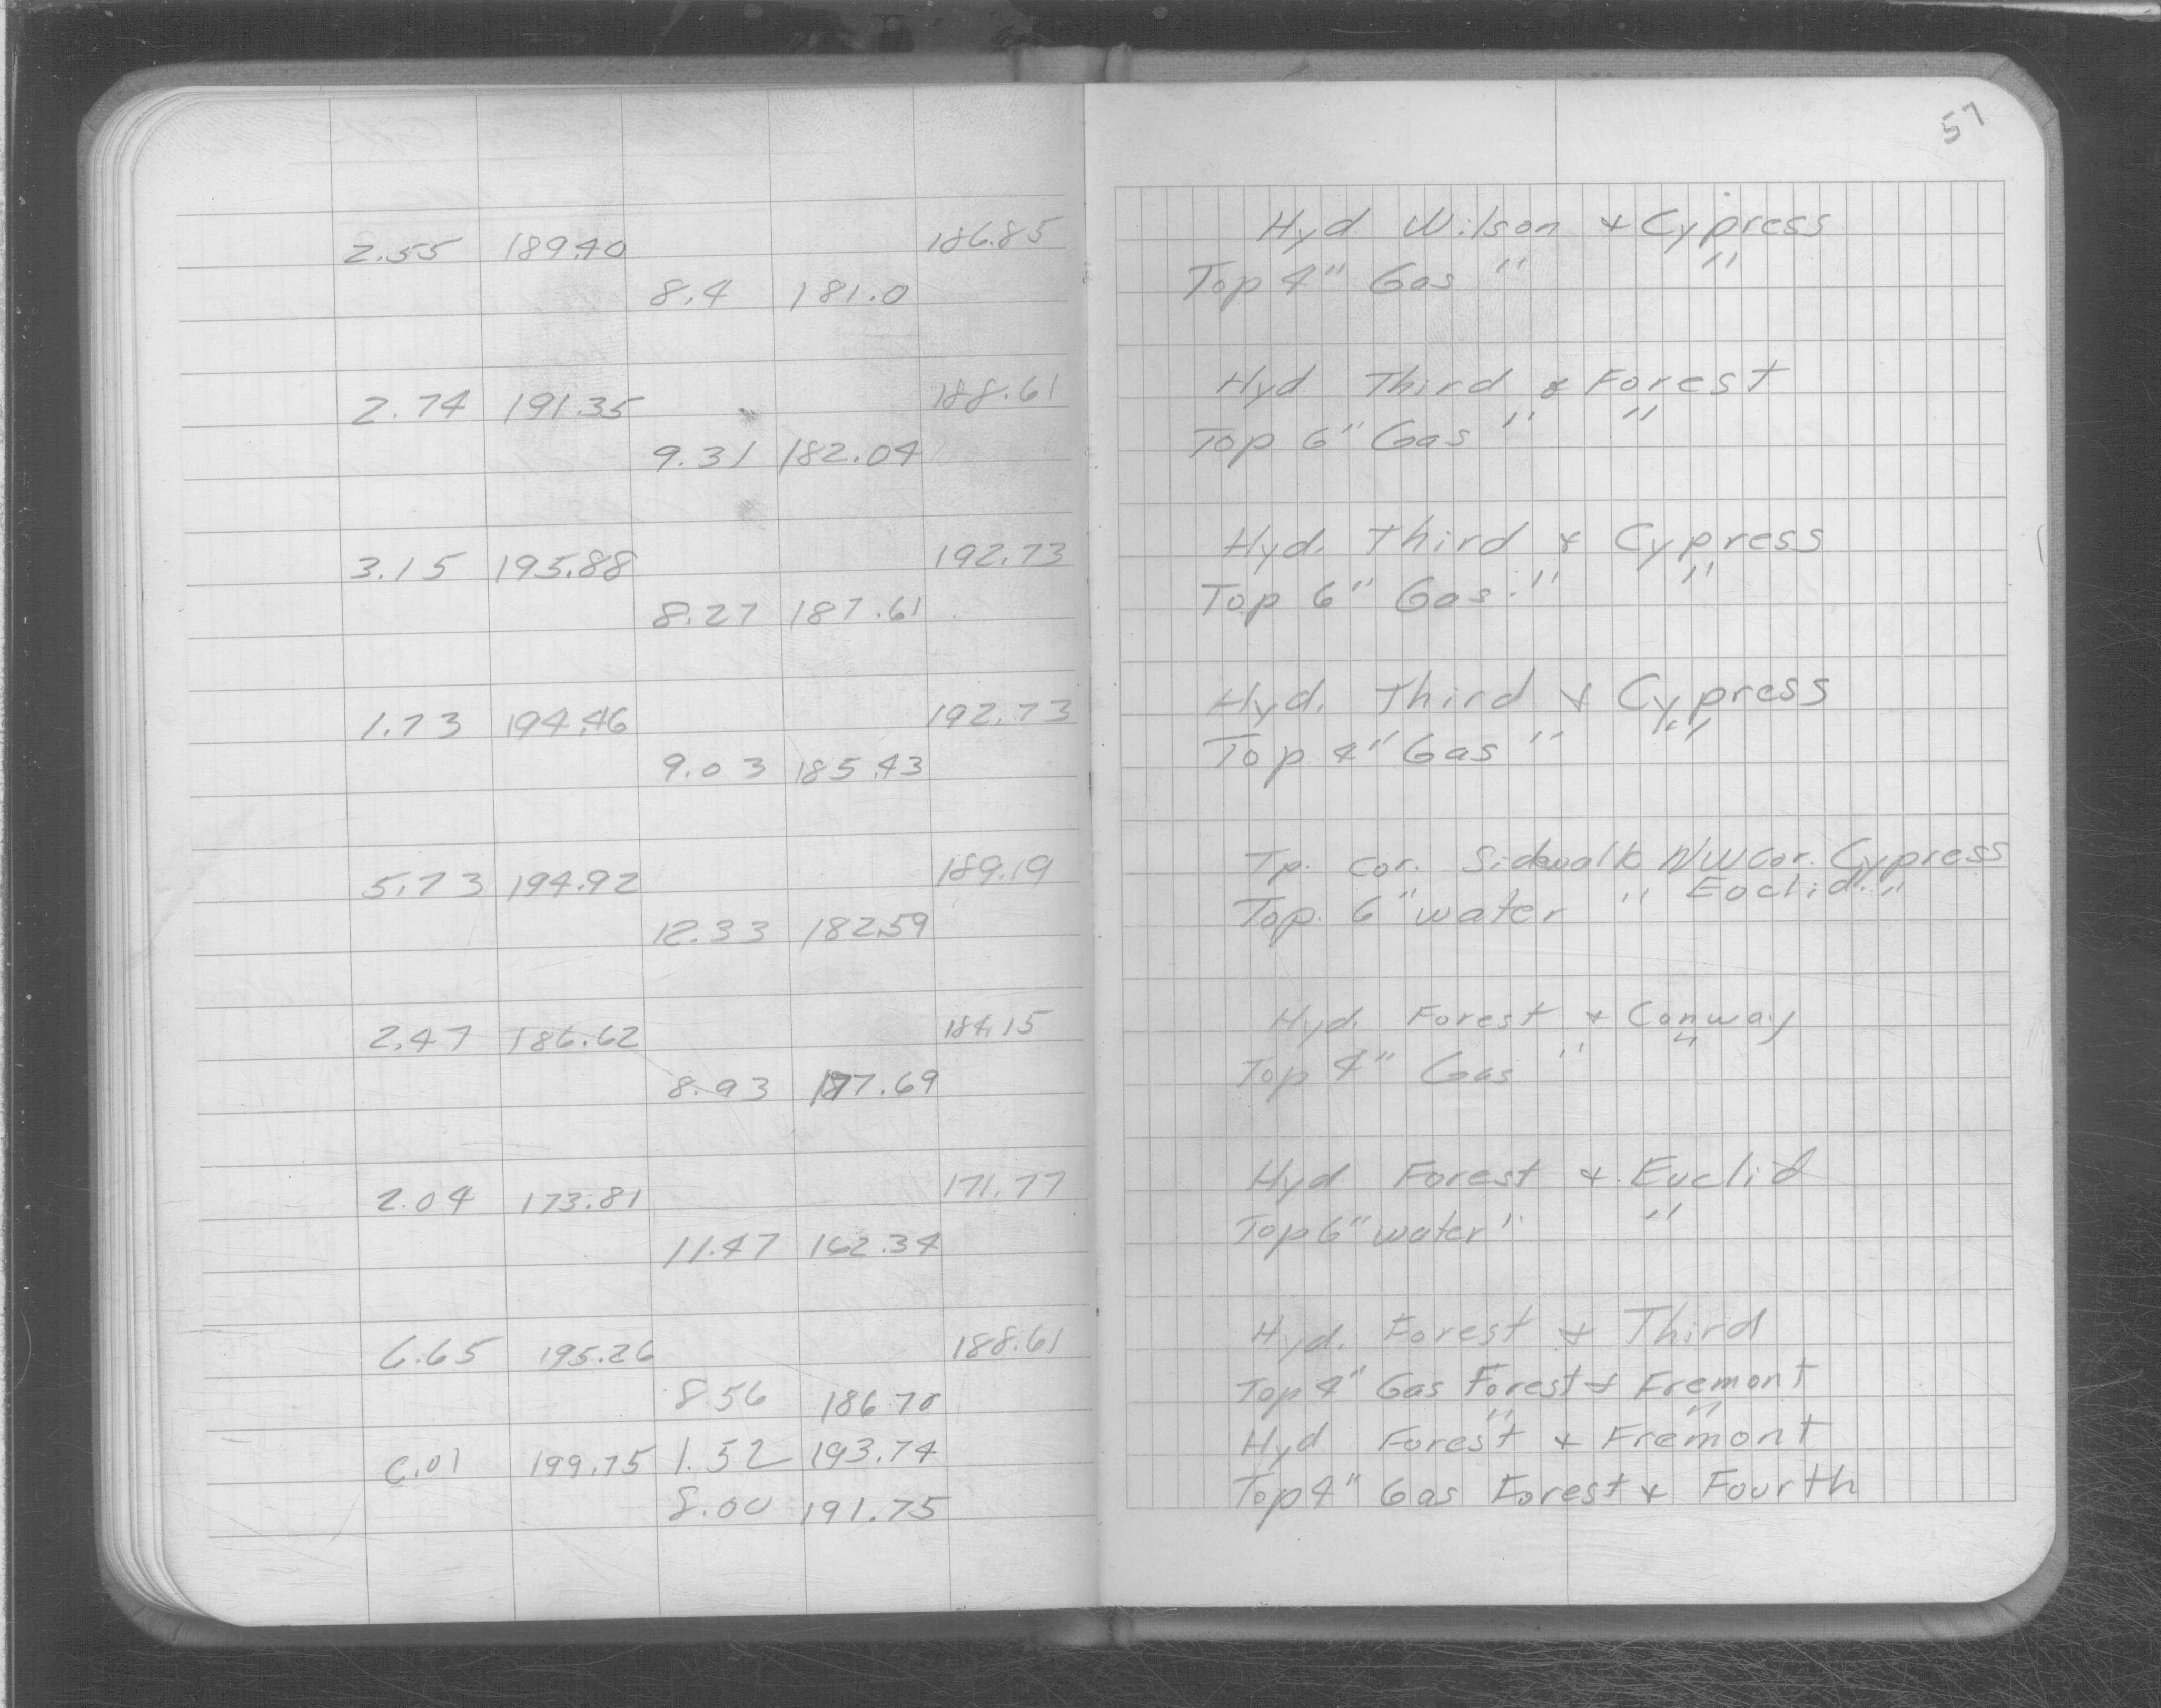 57
2.55 189.40 186.85 Hyd. Wilson & Cypress
8.4 181.0 Top 4" Gas " "
2.74 191.35 188.61 Hyd Third & Forest
9.31 182.04 Top 6" Gas " "
3.15 195.88 192.73 Hyd. Third & Cypress
8.27 187.61 Top 6" Gas " "
1.73 194.46 192.73 Hyd. Third & Cypress
9.03 185.43 Top 4" Gas " "
5.73 194.92 189.19 Tp. Cor. Sidewalk N/W Cor. Cypress
12.33 182.59 Top. 6" water " Euclid. "
2.47 186.62 184.15 Hyd. Forest & Conway
8.93 177.69 Top 4" Gas " "
2.04 173.81 171.77 Hyd Forest & Euclid
11.47 162.34 Top 6" water " "
6.65 195.26 188.61 Hyd. Forest & Third
8.56 186.70 Top 4" Gas Forest & Fremont
6.01 199.75 1.52 193.74 Hyd Forest & Fremont
8.00 191.75 Top 4" Gas Forest & Fourth